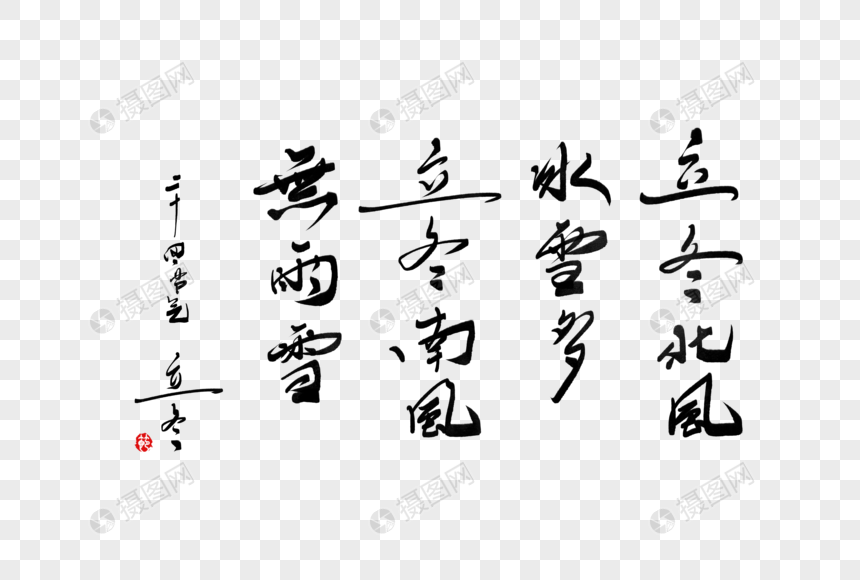 立冬北風
冰雪多
立冬南風
無雨雪
二十四节气 立冬
摄图网
摄图网
摄图网
摄图网
摄图网
摄图网
摄图网
摄图网
摄图网